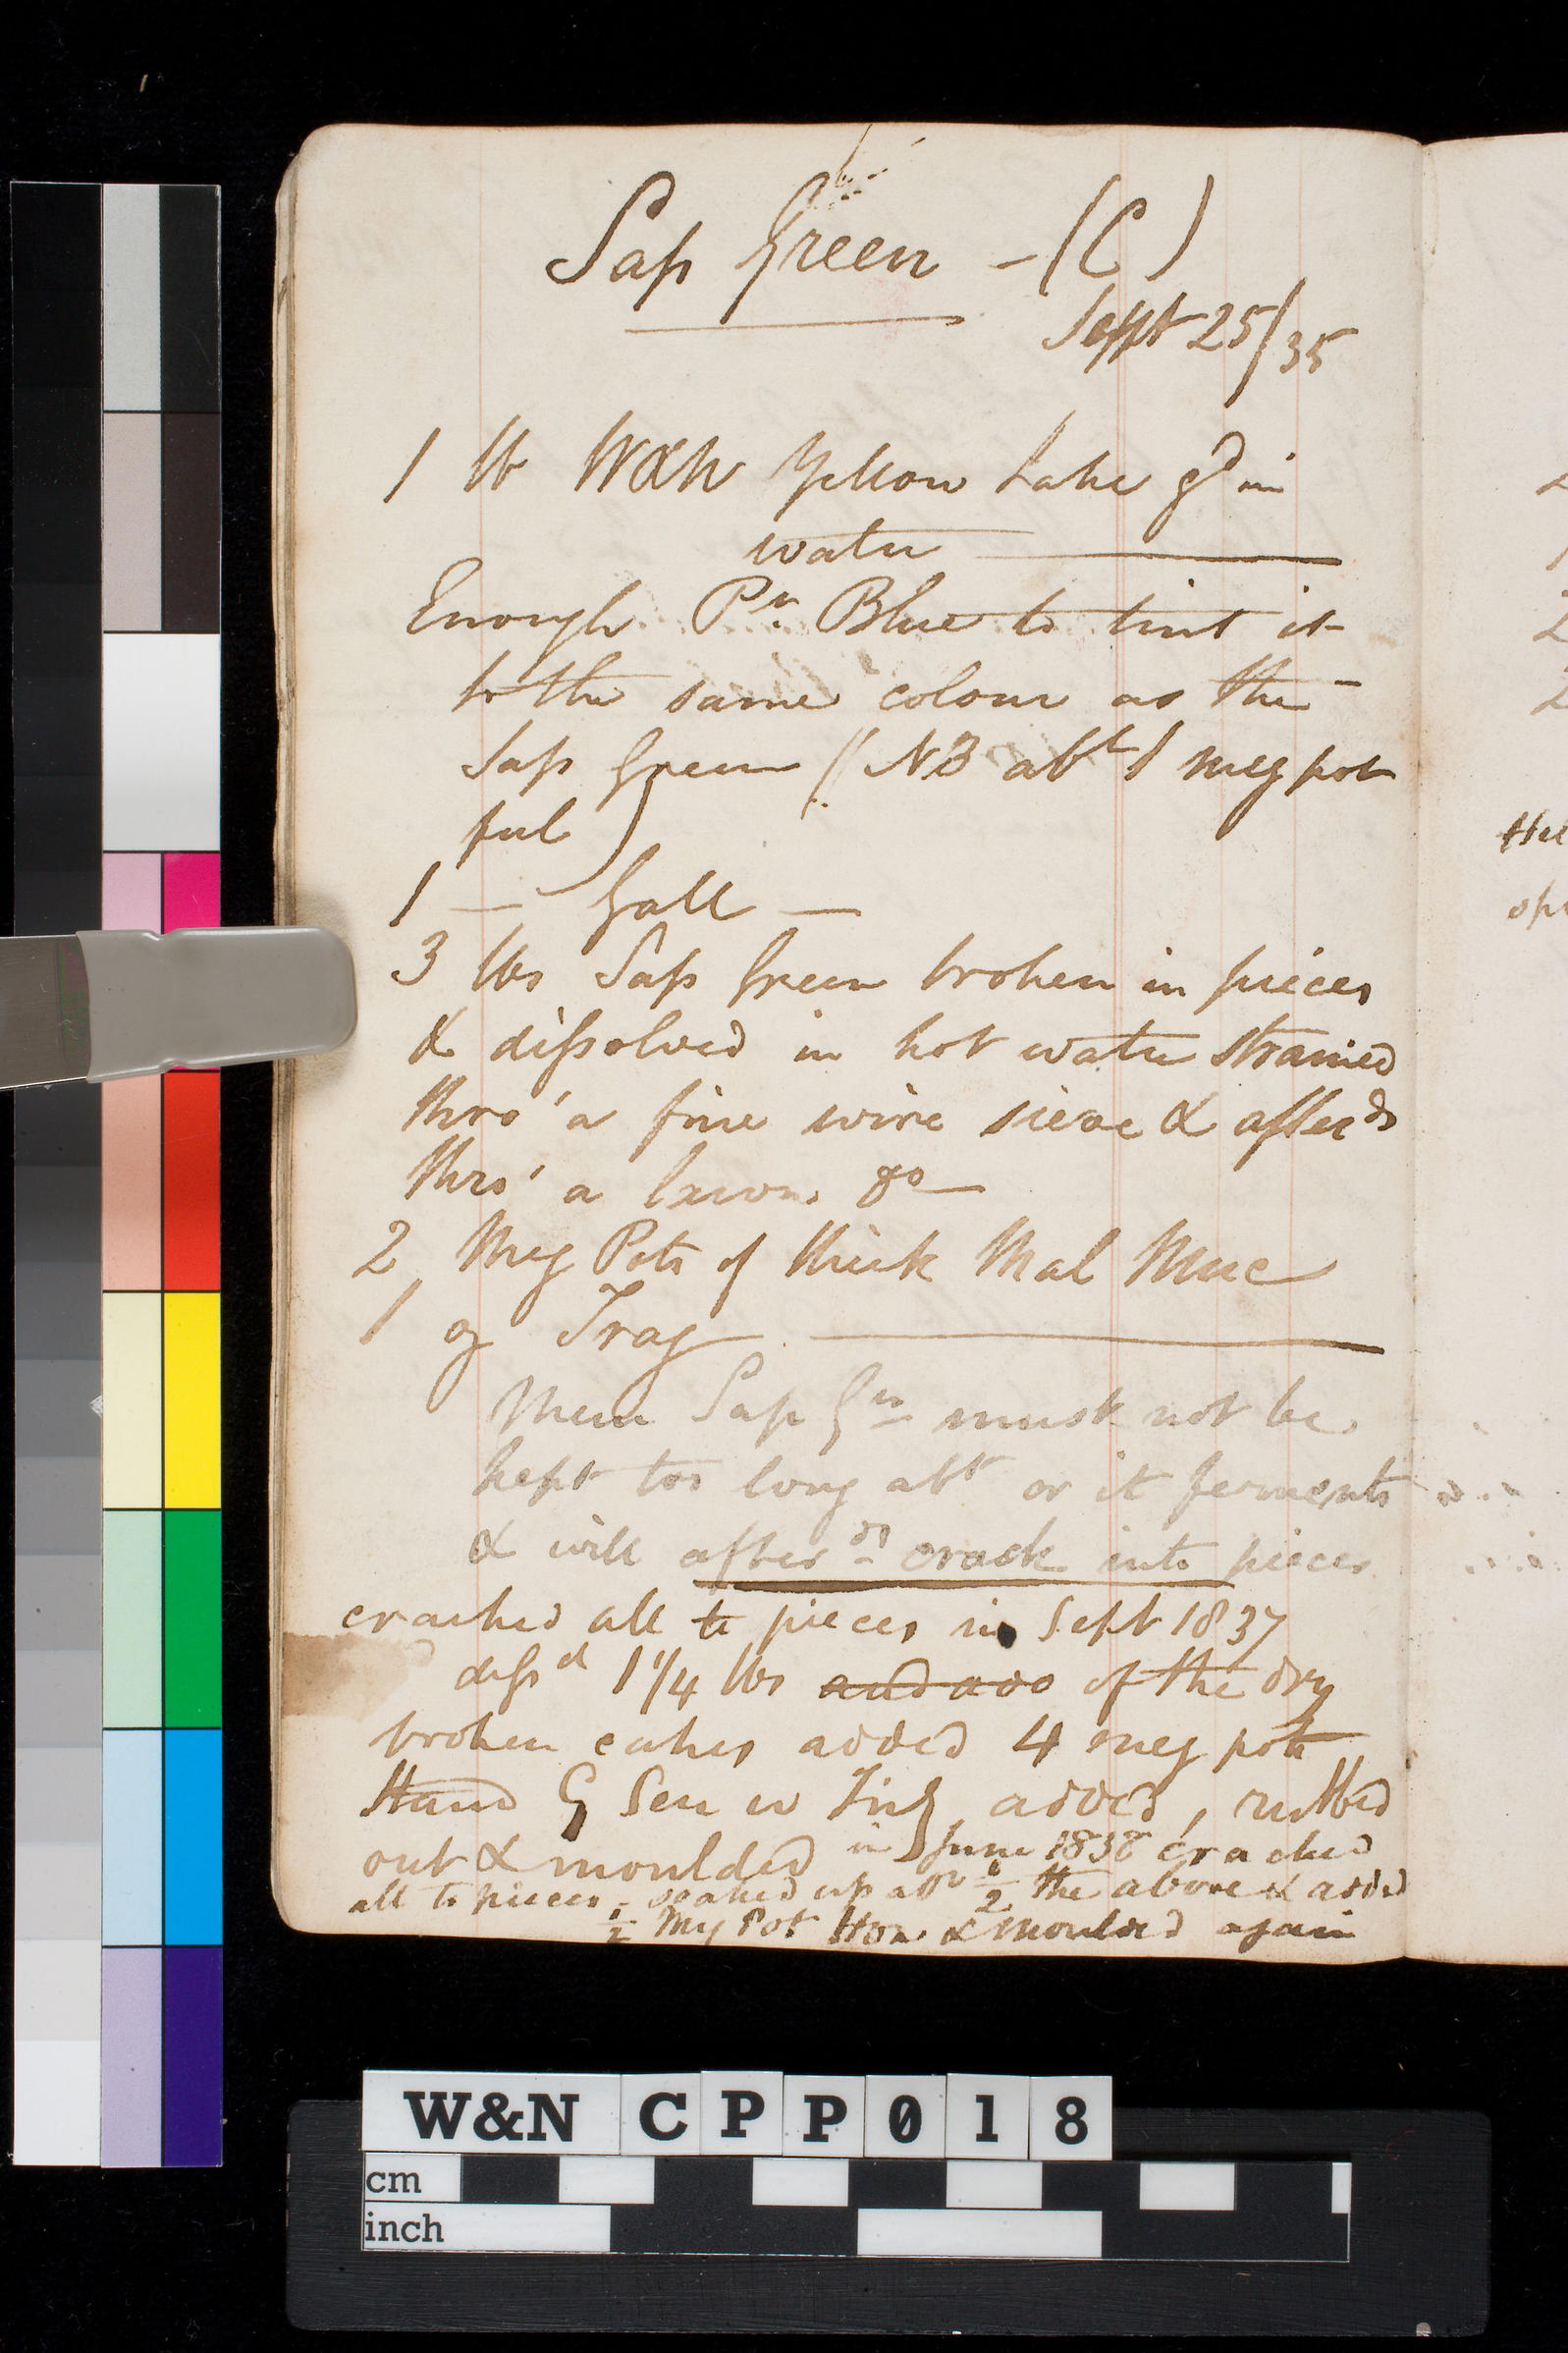 Sap Green - (C)
Sept 25/35
1 lb W&N Yellow Lake gd in
water
Enough Pn Blue to tint it
to the same colour as the
Sap Green (NB abt 1 meg pot
ful)
1 — Gall —
3 lbs Sap Green broken in pieces
& dissolved in hot water strained
thro' a fine wire sieve & afterds
thro' a lawn do
2 Meg Pots of thick Mal Muc
1 oz Trag
Mem Sap Gn must not be
kept too long abt or it ferments
& will afterds crack into pieces
cracked all to pieces in Sept 1837
dissd 1 1/4 lbs and ado of the dry
broken cakes added 4 meg pots
G Sen added, rubbed
out & moulded in June 1838 cracked
all to pieces - soaked up abt 1/2 the above & added
1/2 Mg Pot Hon & moulded again
Hal
W&N CPP018
cm
inch